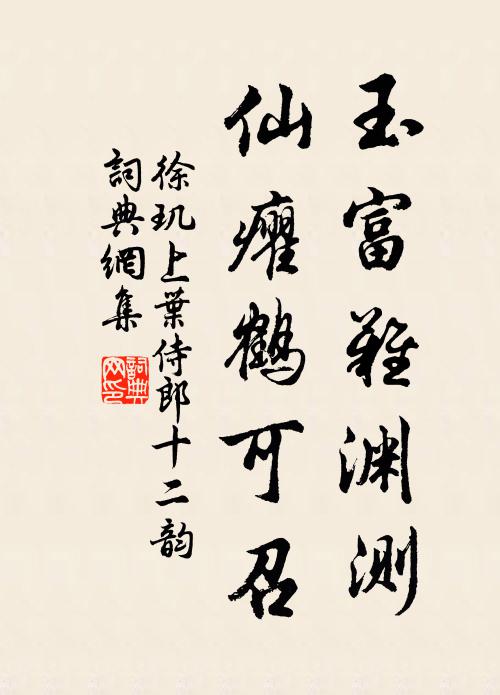 玉富难渊测
仙癯鹤可召
徐玑上葉侍郎十二韵
詞典網集
詞典网印